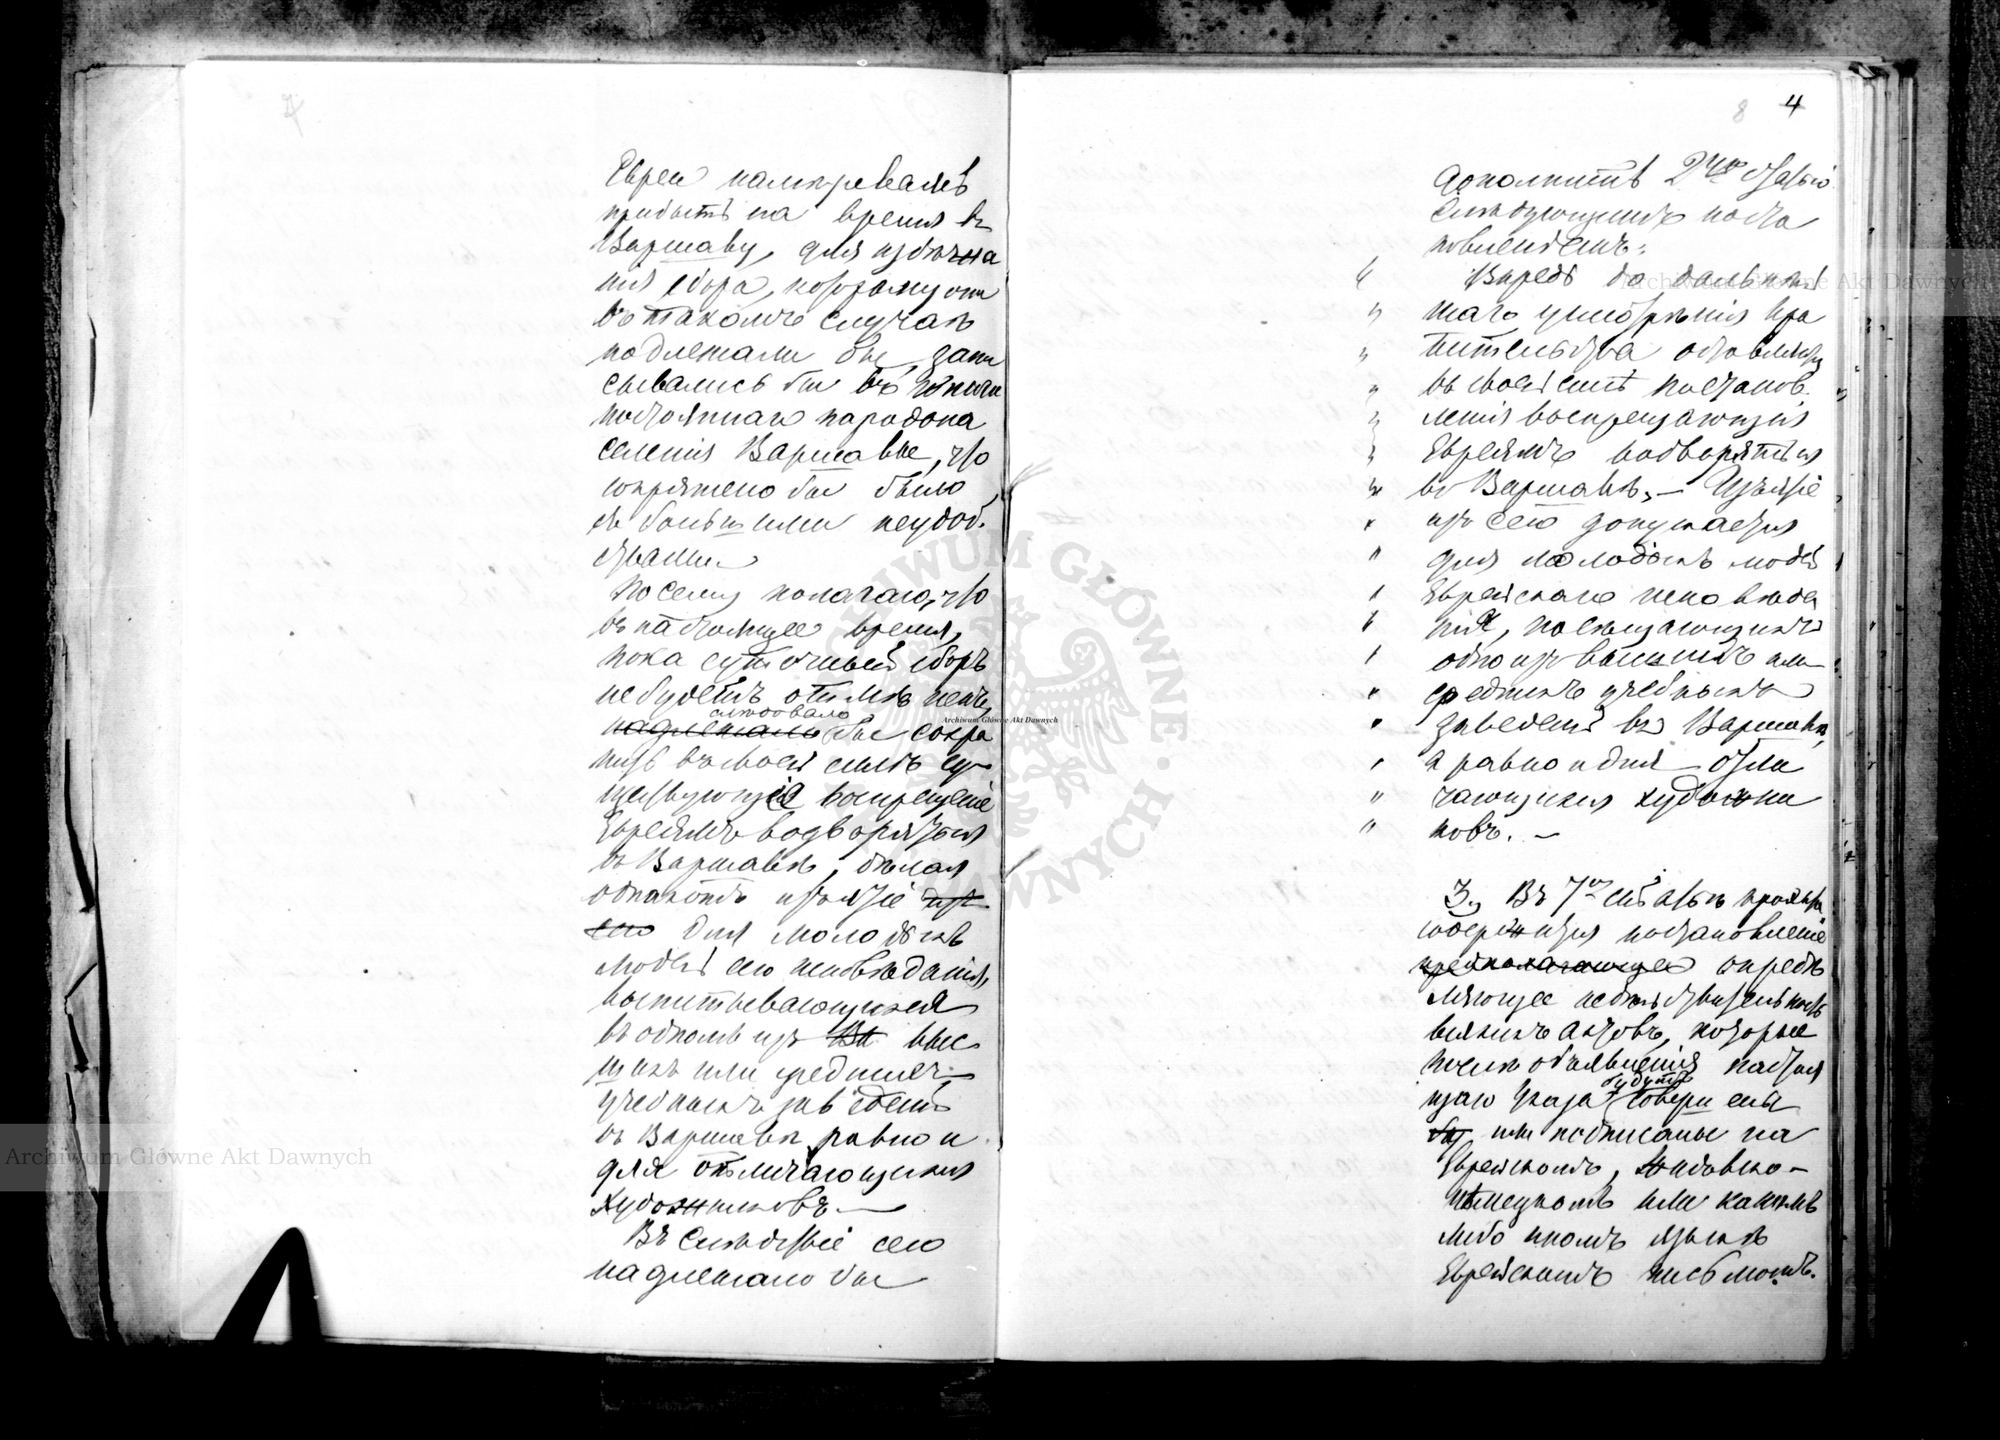 7
Евреи намѣревалсь
прибыть на время въ
Варшаву, для избѣжа
нія сбора, которому они
въ такомъ случаѣ
подлежали бы, запи
сывались бы въ книги
постояннаго народона
селенія Варшавы, что
сопряжено бы было
съ большими неудоб.
ствами
По сему полагаю, что
въ настоящее время,
пока суточный сборъ
не будетъ отмѣненъ,
слѣдовало
надлежало бы сохра
нить въ своей силѣ су-
ществующія воспрещеніе
Евреямъ водворяться
въ Варшавѣ, дѣлая
однакожъ изъятіе изъ
сего для молодыхъ
людей сего исповѣданія,
воспитывающихся
въ одномъ изъ Ва выс
шихъ или среднихъ
учебныхъ заведеній
въ Варшавѣ, равно и
для отличающихся
художниковъ. —
Въ слѣдствіе сего
надлежало бы
8 4
дополнить 2ую статью
слѣдующимъ поста
новленіемъ:
" Впредь до дальнѣй
" шаго усмотрѣнія Пра
" вительства оставляются
" въ своей силѣ постанов
" ленія воспрещающія
" Евреямъ водворяться
" въ Варшавѣ. — Изъятіе
" изъ сего допускается
" для молодыхъ людей
" Еврейскаго исповѣда
" нія, посѣщающихъ
" одно изъ высшихъ или
" среднихъ учебныхъ
" заведеній въ Варшавѣ,
" а равно и для отли
" чающихся художни
" ковъ. —
3, Въ 7ой статьѣ проэкта
содержится постановленіе
предполагающее опредѣ
ляющее недѣйствительность
всякихъ актовъ, которые
послѣ объявленія настоя
будутъ
щаго Указа совершены
бу, или подписаны на
Еврейскомъ, Жидовско-
нѣмецкомъ или какимъ
либо иномъ языкѣ
Еврейскимъ письмомъ.
Archiwum Główne Akt Dawnych
Archiwum Główne Akt Dawnych
Archiwum Główne Akt Dawnych
ARCHIWUM GŁÓWNE AKT DAWNYCH